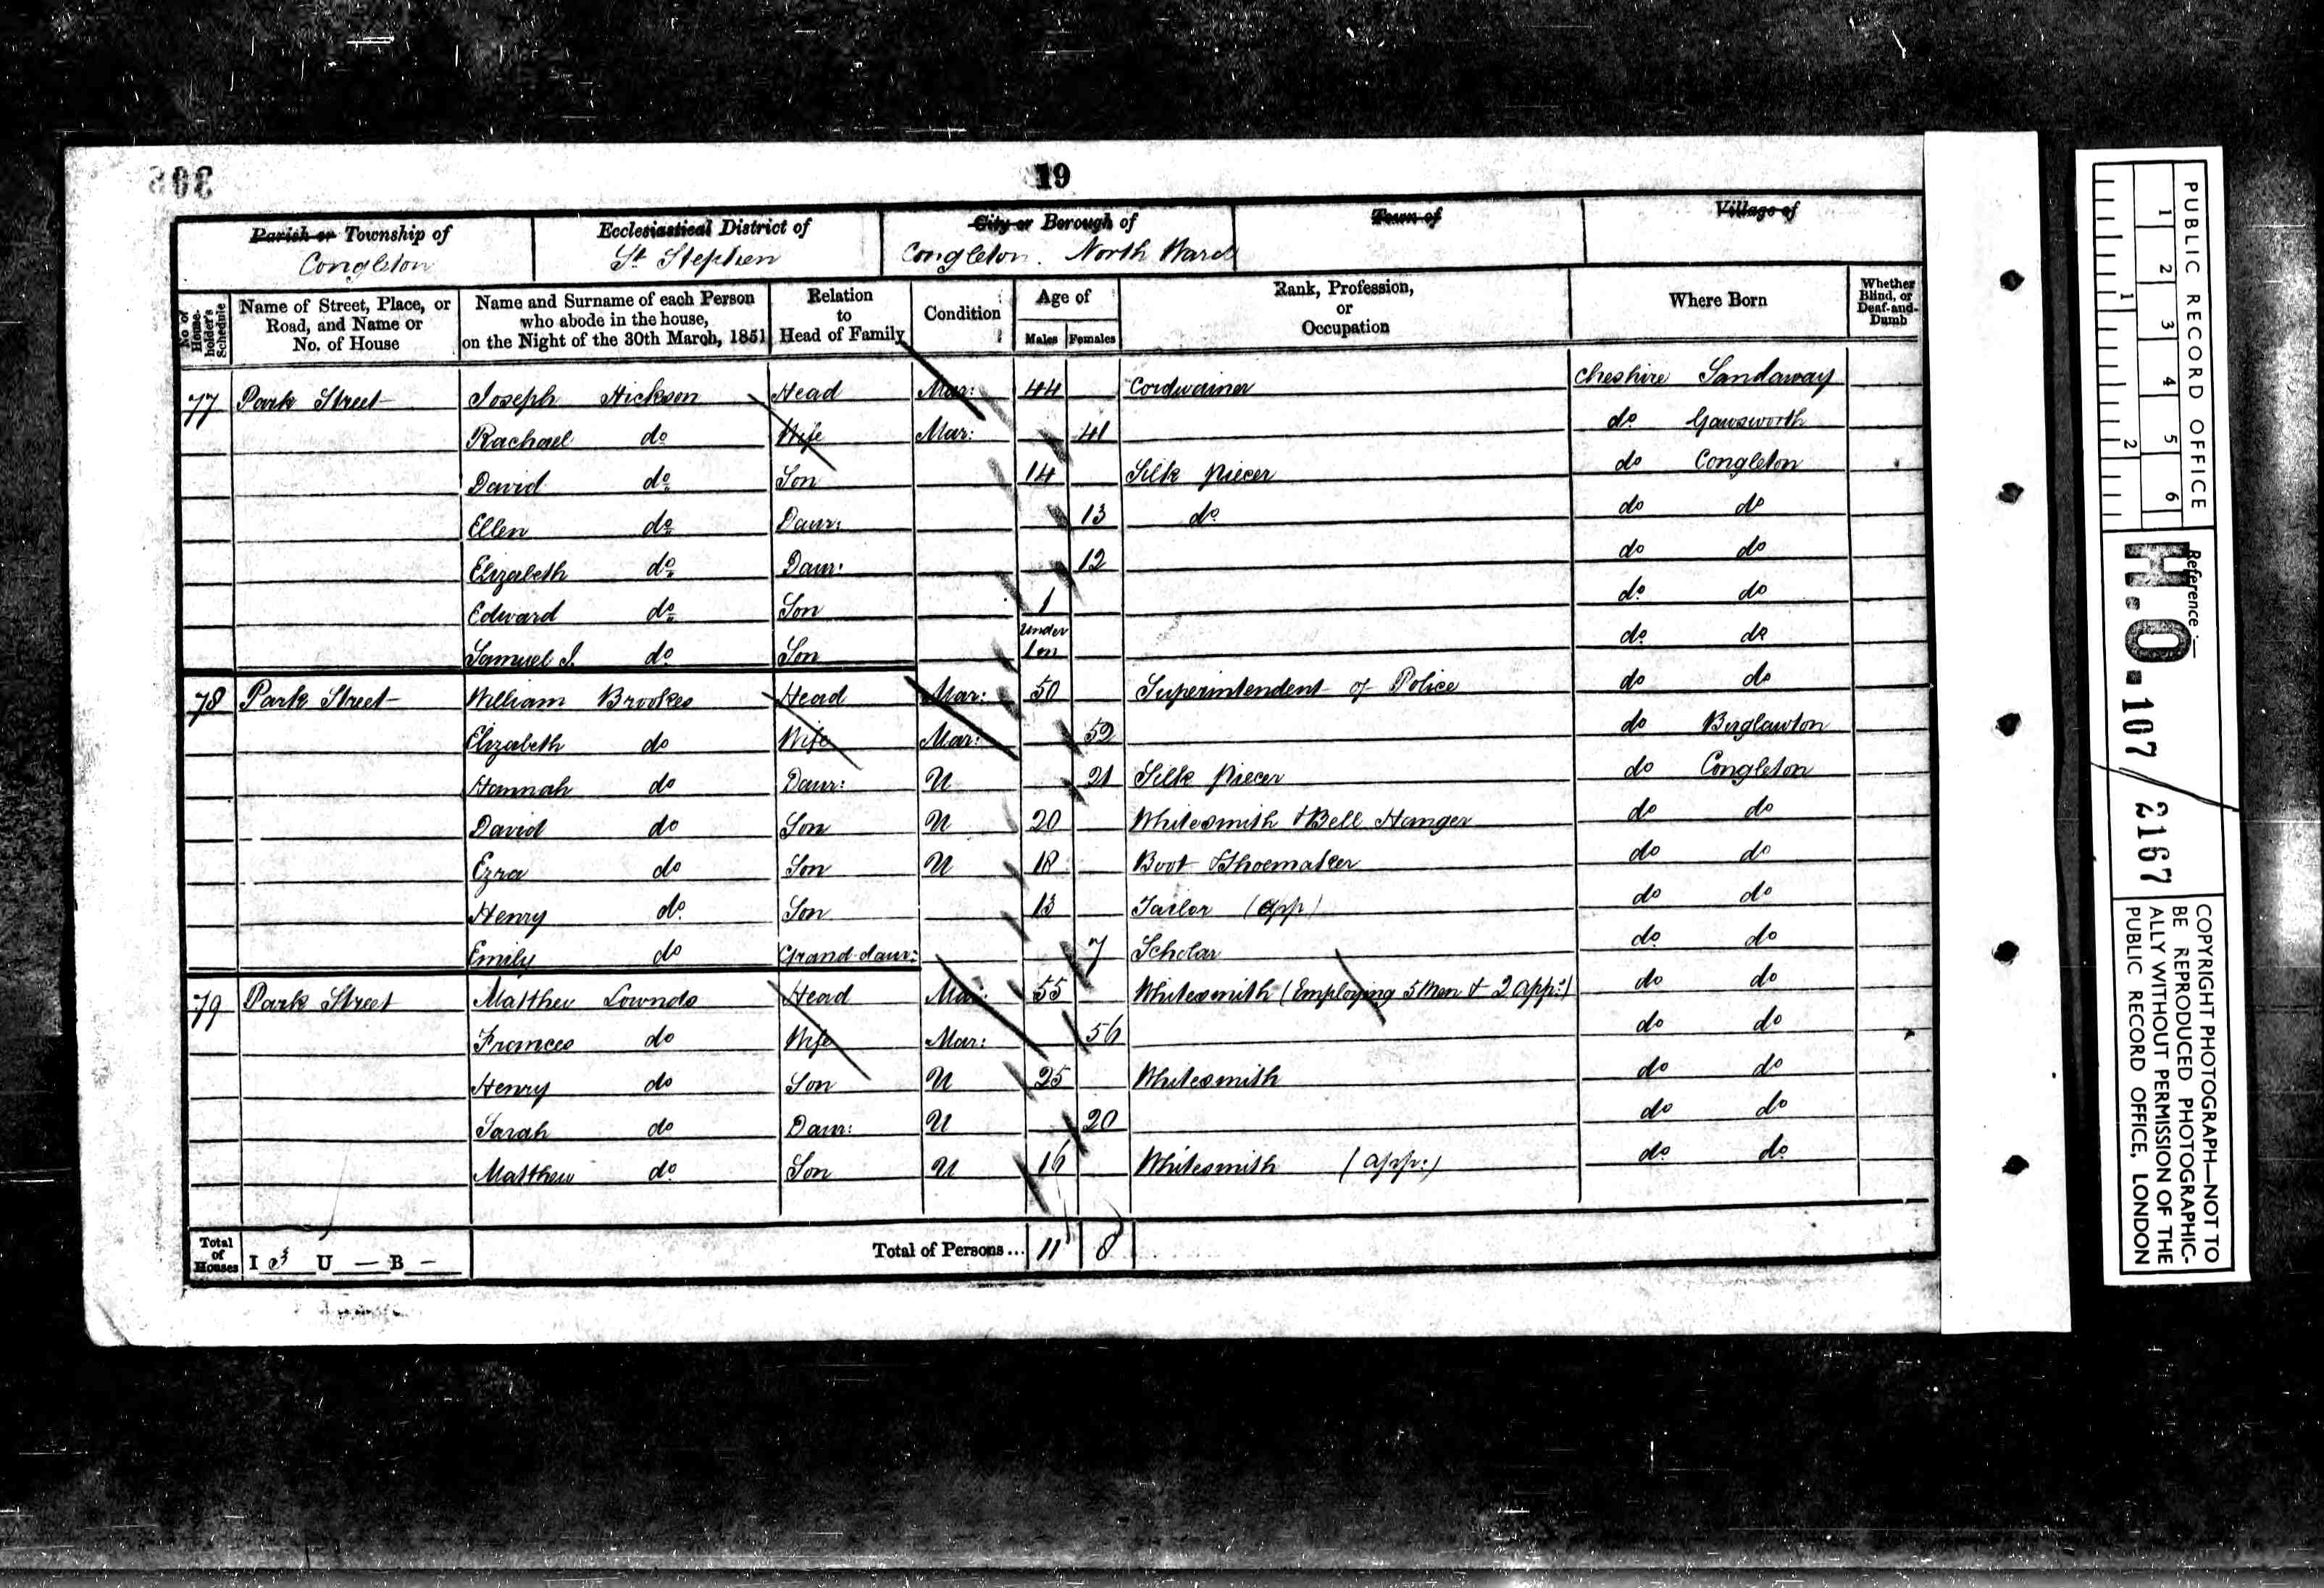 19
Parish or Township of
Congleton
Ecclesiastical District of
St Stephen
City or Borough of
Congleton. North Ward
Town of
Village of
No of House-holder's Schedule
Name of Street, Place, or Road, and Name or No. of House
Name and Surname of each Person who abode in the house, on the Night of the 30th March, 1851
Relation to Head of Family
Condition
Age of
Males Females
Rank, Profession, or Occupation
Where Born
Whether Blind, or Deaf-and-Dumb
77 Park Street Joseph Hickson Head Mar: 44 Cordwainer Cheshire Sandaway
Rachael do Wife Mar: 41 do Gawsworth
David do Son 14 Silk piecer do Congleton
Ellen do Daur: 13 do do do
Elizabeth do Daur: 12 do do
Edward do Son 1 do do
Samuel J. do Son under 1m do do
78 Park Street William Brookes Head Mar: 50 Superintendent of Police do do
Elizabeth do Wife Mar: 52 do Buglawton
Hannah do Daur: U 21 Silk piecer do Congleton
David do Son U 20 Whitesmith & Bell Hanger do do
Ezra do Son U 18 Boot & Shoemaker do do
Henry do Son 13 Tailor (app) do do
Emily do Grand-daur: 7 Scholar do do
79 Park Street Matthew Lownds Head Mar: 55 Whitesmith (Employing 5 Men & 2 app:) do do
Frances do Wife Mar: 56 do do
Henry do Son U 25 Whitesmith do do
Sarah do Daur: U 20 do do
Matthew do Son U 16 Whitesmith (app:) do do
Total of Houses I 3 U — B — Total of Persons... 11 8
PUBLIC RECORD OFFICE
1 2 3 4 5 6
1 2
Reference:—
H.O. 107 / 2167
COPYRIGHT PHOTOGRAPH—NOT TO
BE REPRODUCED PHOTOGRAPHIC-
ALLY WITHOUT PERMISSION OF THE
PUBLIC RECORD OFFICE, LONDON